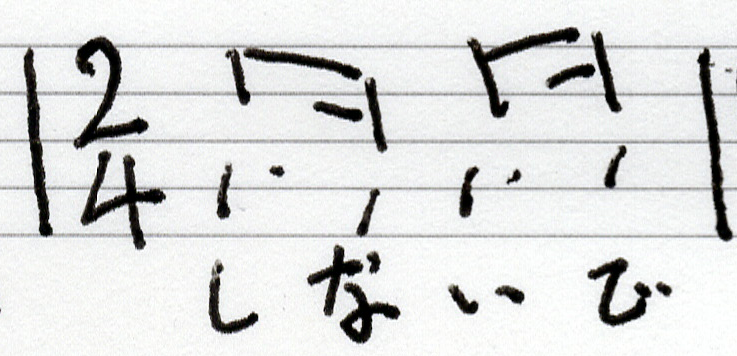 2
4
しないで